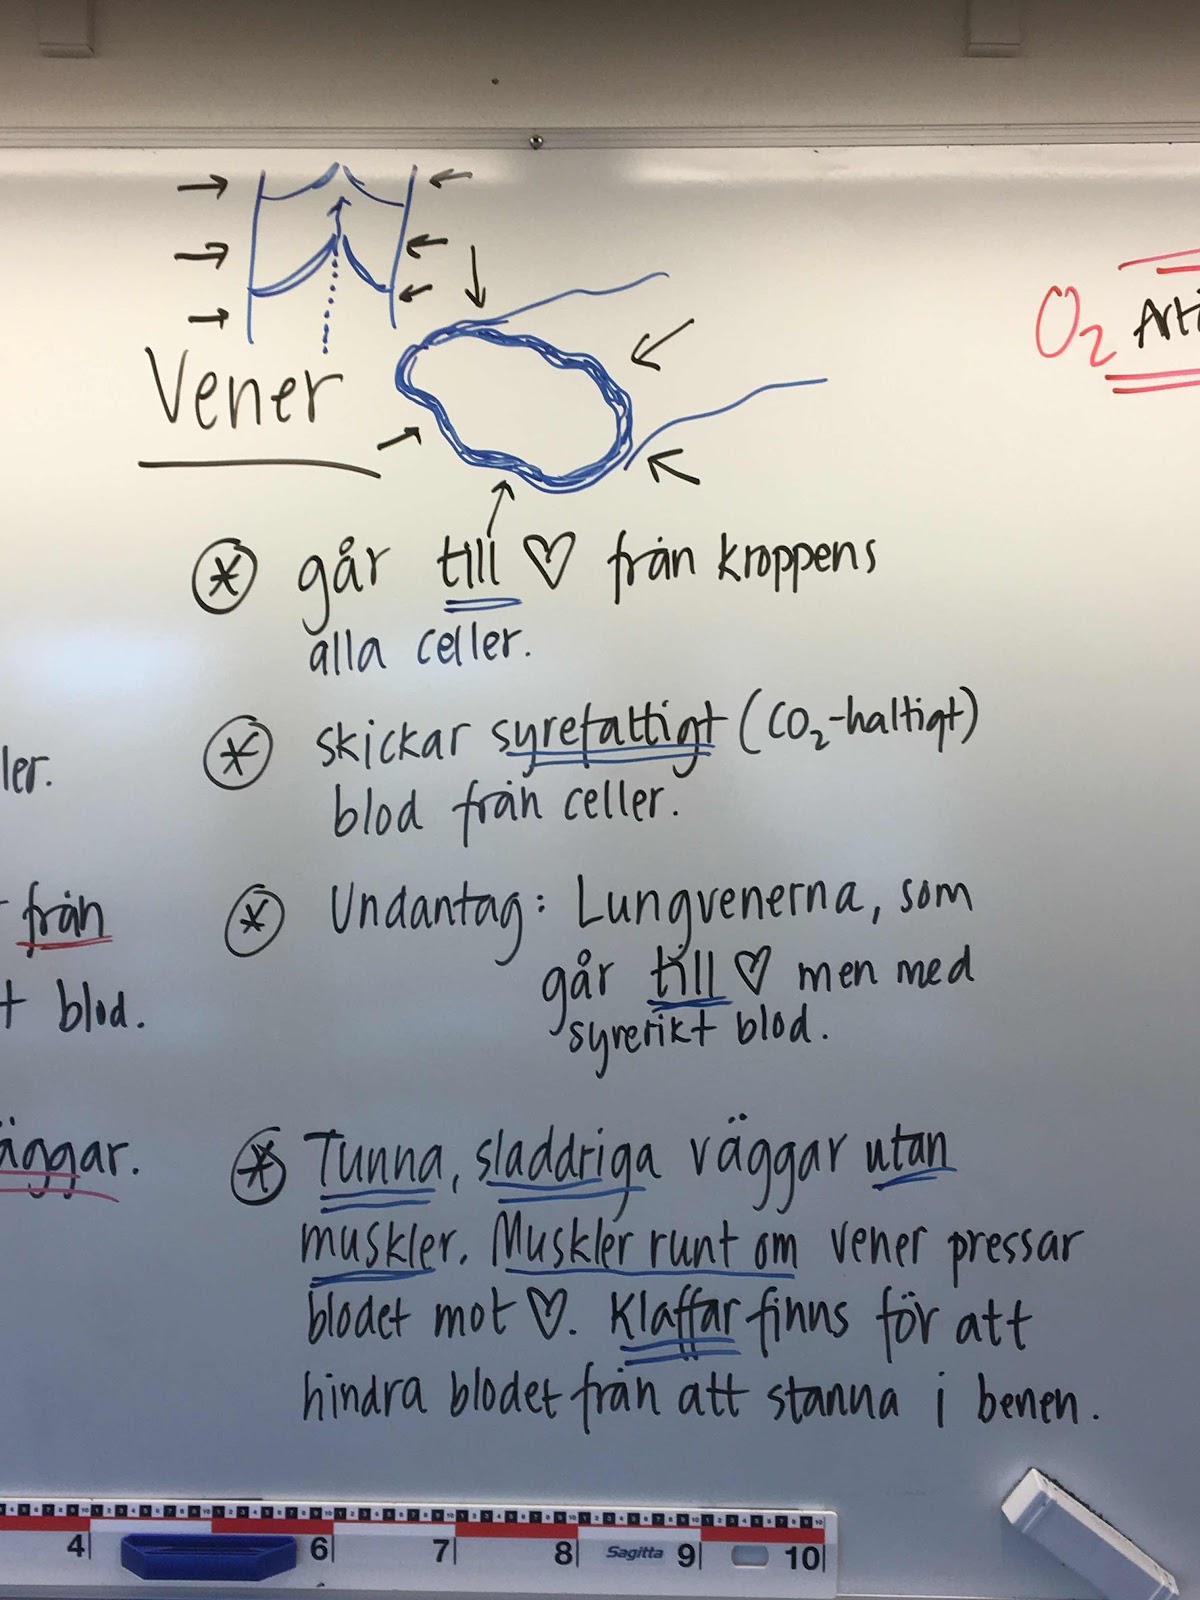 Vener
O₂ Art
⊛ går till ♡ från kroppens
alla celler.
⊛ skickar syrefattigt (CO₂-haltigt)
blod från celler.
⊛ Undantag: Lungvenerna, som
går till ♡ men med
syrerikt blod.
⊛ Tunna, sladdriga väggar utan
muskler. Muskler runt om vener pressar
blodet mot ♡. Klaffar finns för att
hindra blodet från att stanna i benen.
ler.
från
t blod.
äggar.
4 6 7 8 Sagitta 9 10